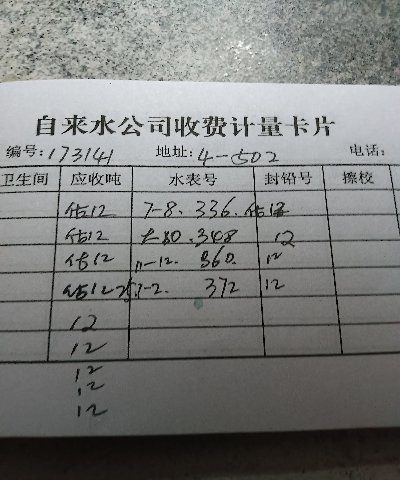 自来水公司收费计量卡片
编号:173141 地址:4-502 电话:
卫生间 应收吨 水表号 封铅号 擦校
估12 7-8. 336. 估12
估12 348 12
估12 11-12. 360. 12
估12 1-2. 372 12
12
12
12
12
12